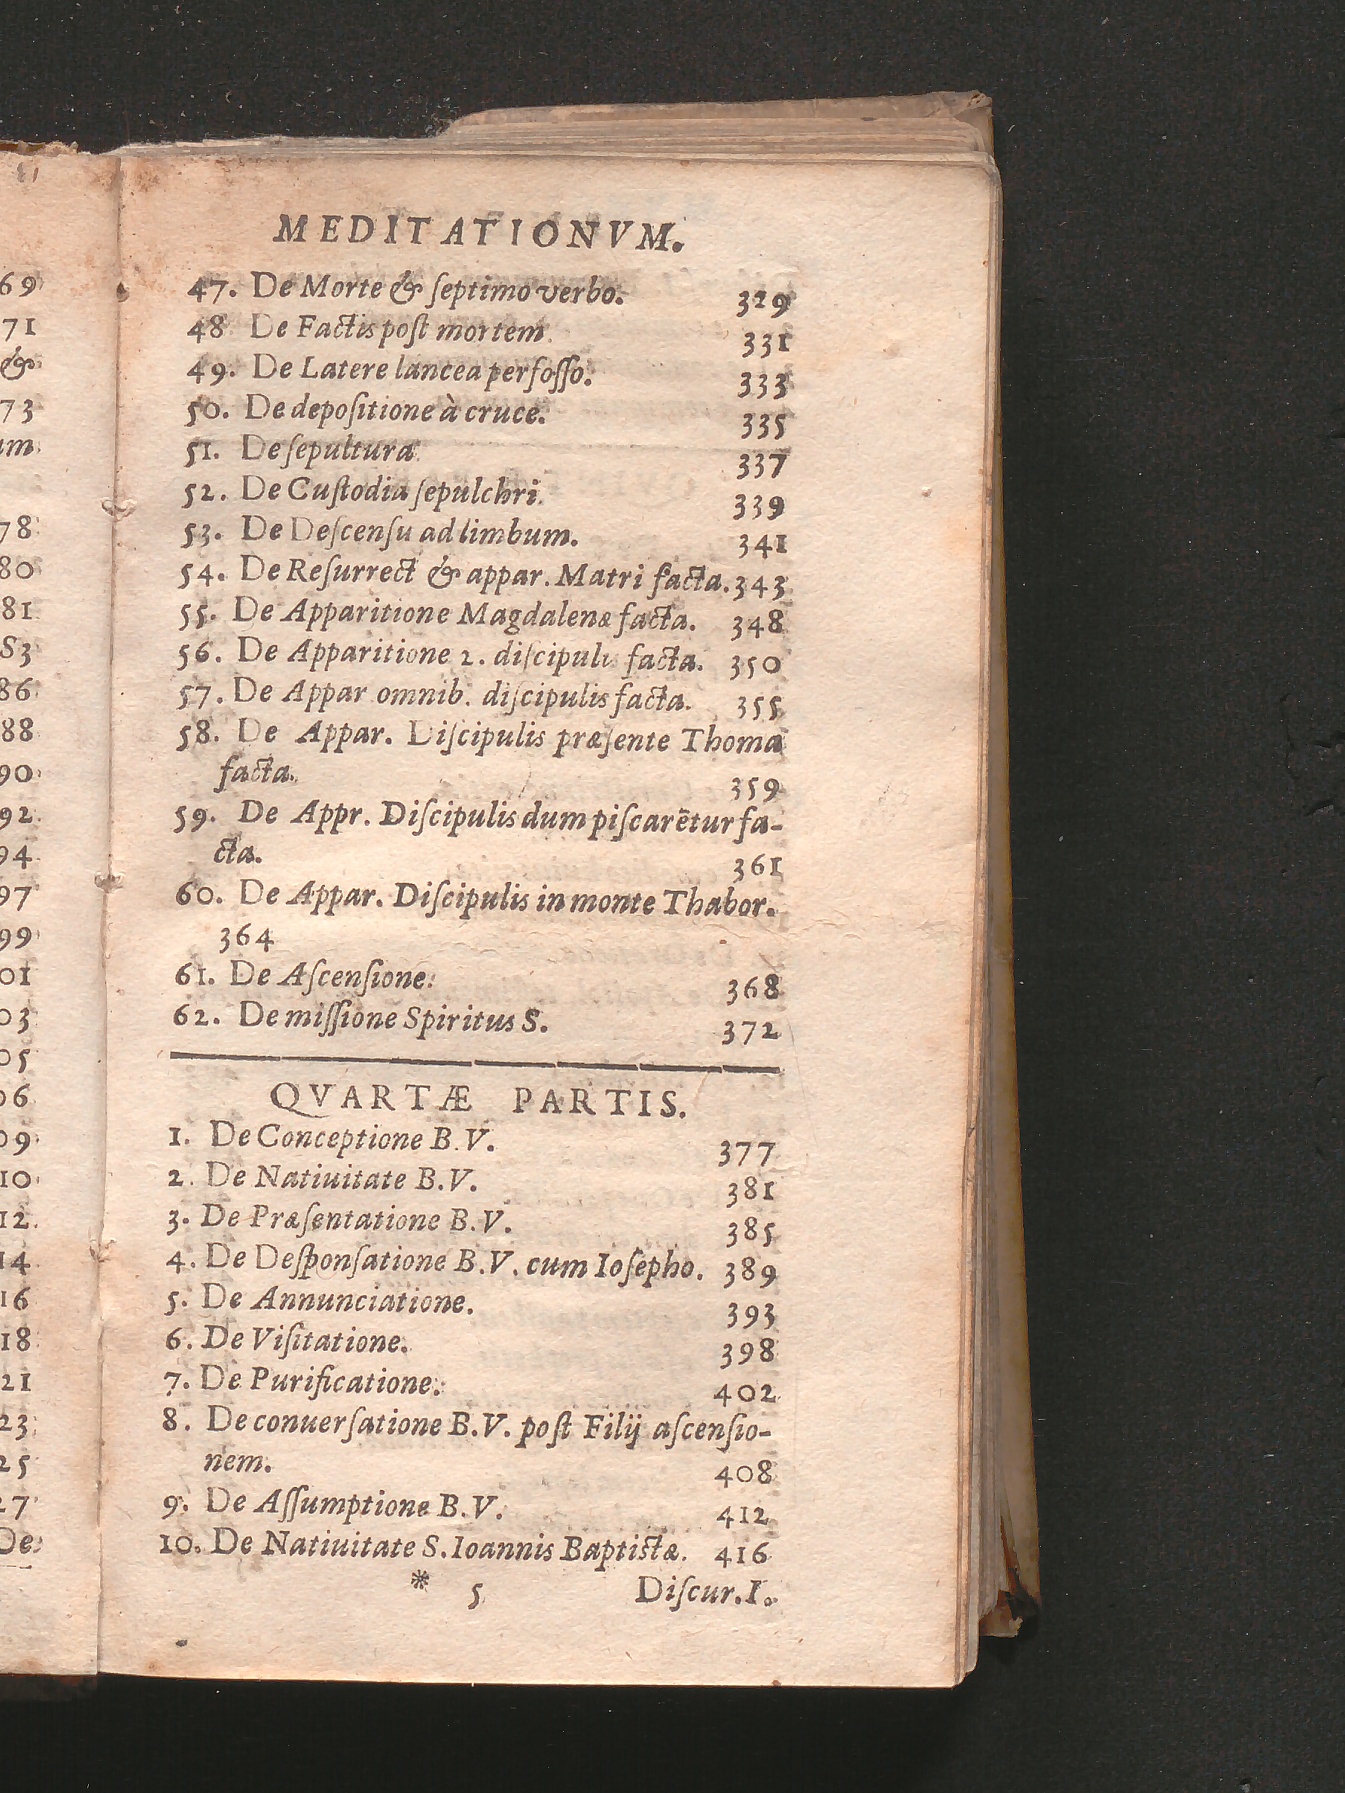 MEDITATIONVM.
47. De Morte & ſeptimo verbo. 329
48 De Factis poſt mortem. 331
49. De Latere lancea perfoſſo. 333
50. De depoſitione à cruce. 335
51. De ſepultura 337
52. De Cuſtodia ſepulchri. 339
53. De Deſcenſu ad limbum. 341
54. De Reſurrect & appar. Matri facta. 343
55. De Apparitione Magdalenæ facta. 348
56. De Apparitione 2. diſcipulis facta. 350
57. De Appar omnib. diſcipulis facta. 355
58. De Appar. Diſcipulis præſente Thoma
facta. 359
59. De Appr. Diſcipulis dum piſcarētur fa-
cta. 361
60. De Appar. Diſcipulis in monte Thabor.
364
61. De Aſcenſione. 368
62. De miſſione Spiritus S. 372
QVARTÆ PARTIS.
1. De Conceptione B.V. 377
2. De Natiuitate B.V. 381
3. De Præſentatione B.V. 385
4. De Deſponſatione B.V. cum Ioſepho. 389
5. De Annunciatione. 393
6. De Viſitatione. 398
7. De Purificatione. 402
8. De conuerſatione B.V. poſt Filij aſcenſio-
nem. 408
9. De Aſſumptione B.V. 412
10. De Natiuitate S. Ioannis Baptiſtæ. 416
* 5 Diſcur. I.